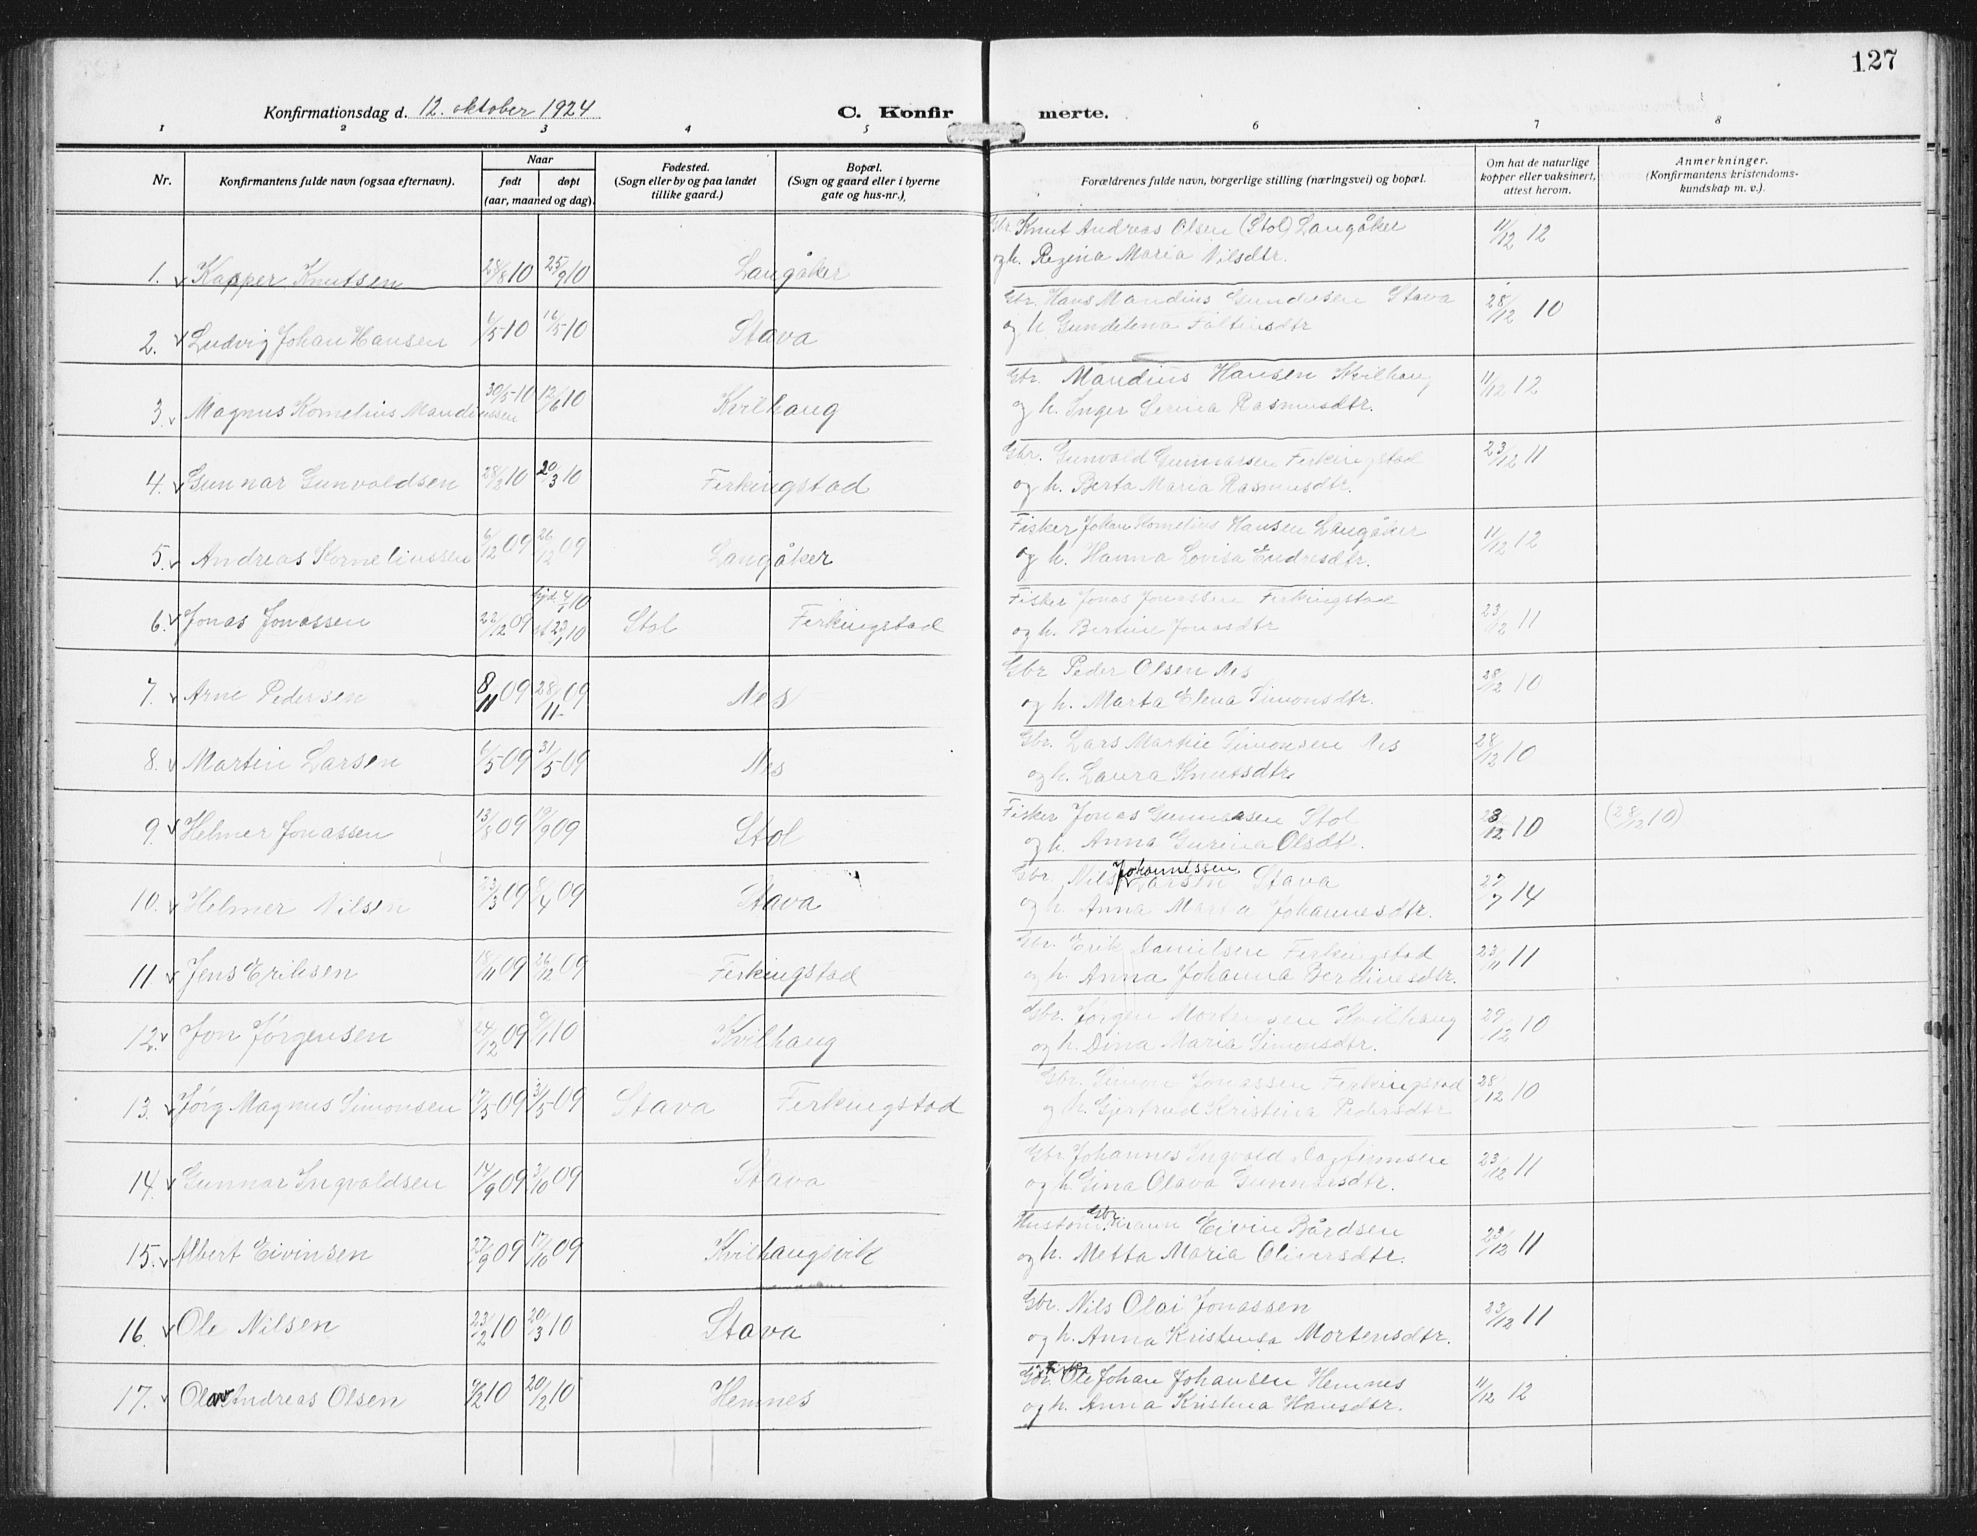 127
Konfirmationsdag d. 12. oktober 1924
C. Konfirmerte.
1 2 3 4 5 6 7 8
Nr.
Konfirmantens fulde navn (ogsaa efternavn).
Naar
født døpt
(aar, maaned og dag).
Fødested.
(Sogn eller by og paa landet
tillike gaard.)
Bopæl.
(Sogn og gaard eller i byerne
gate og hus-nr.)
Forældrenes fulde navn, borgerlige stilling (næringsvei) og bopæl.
Om hat de naturlige
kopper eller vaksinert,
attest herom.
Anmerkninger.
(Konfirmantens kristendoms-
kundskap m. v.).
Gbr. Knut Andreas Olsen (Stol) Langåker 11/12 12
1. Kasper Knutsen 28/8 10 25/9 10 Langåker og h. Regina Maria Nilsdtr.
Gbr. Hans Mandius Gundersen Stava 28/12 10
2. Ludvig Johan Hansen 1/5-10 16/5-10 Stava og h. Gundelena Faltinsdtr
Gbr. Mandius Hansen Kvilhaug 11/12 12
3. Magnus Kornelius Mandiussen 30/5-10 12/6 10 Kvilhaug og h. Inger Serina Rasmusdtr.
Gbr. Gunvald Gunnarsen Ferkingstad 23/12 11
4. Gunnar Gunvaldsen 28/2 10 20/3 10 Ferkingstad og h. Berta Maria Rasmusdtr.
Fisker Johan Kornelius Hansen Langåker 11/12 12
5. Andreas Korneliussen 6/12 09 26/12 09 Langåker og h. Hanna Lovisa Endresdtr.
Fisker Jonas Jonassen Ferkingstad 23/12 11
6. Jonas Jonassen 22/12 09 hjd. 4/1 10 st 23/1 10 Stol Ferkingstad og h. Bertine Jonasdtr
Gbr Peder Olsen Nes 28/12 10
7. Arne Pedersen 8/11 09 28/11 09 Nes og h. Marta Elena Simonsdtr.
Gbr. Lars Martin Simonsen Nes 28/12 10
8. Martin Larsen 6/5-09 31/5-09 Nes og h. Laura Knutsdtr.
Fisker Jonas Gunnarsen Stol 28/12 10 (28/12 10)
9. Helmer Jonassen 13/8 09 19/9 09 Stol og h. Anna Gurina Olsdt.
Gbr. Nils Johannessen Larsen Stava 27/7 14
10. Helmer Nilsen 23/3 09 8/4 09 Stava og h. Anna Marta Johannesdtr.
Gbr. Erik Danielsen Ferkingstad 23/11 11
11 Jens Eriksen 18/11 09 26/12 09 Ferkingstad og h. Anna Johanna Berdinesdtr.
Gbr. Jørgen Mortensen Kvilhaug 29/12 10
12. Jon Jørgensen 24/12 09 9/1 10 Kvilhaug og h. Dina Maria Simonsdtr.
Gbr. Simon Jonassen Ferkingstad 28/12 10
13. Jørg Magnus Simonsen 17/5-09 31/5-09 Stava Ferkingstad og h. Gjertrud Kristina Pedersdtr
Gbr Johannes Ingvald Dagfinnsen 23/12 11
14. Gunnar Ingvaldsen 14/9 09 3/10 09 Stava og h. Gina Olava Gunnarsdtr.
Hustømmermann Gbr. Eivin Bårdsen 23/12 11
15. Albert Eivinsen 27/9 09 17/10 09 Kvilhaugsvik og h. Metta Maria Oliversdtr.
Gbr. Nils Olai Jonassen 23/12 11
16. Ole Nilsen 23/2 10 20/3 10 Stava og h. Anna Kristensa Mortensdtr.
Gbr. Ole Johan Johansen Hemnes 11/12 12
17. Olav Andreas Olsen 9/2 10 20/2 10 Hemnes og h. Anna Kristina Hansdtr.